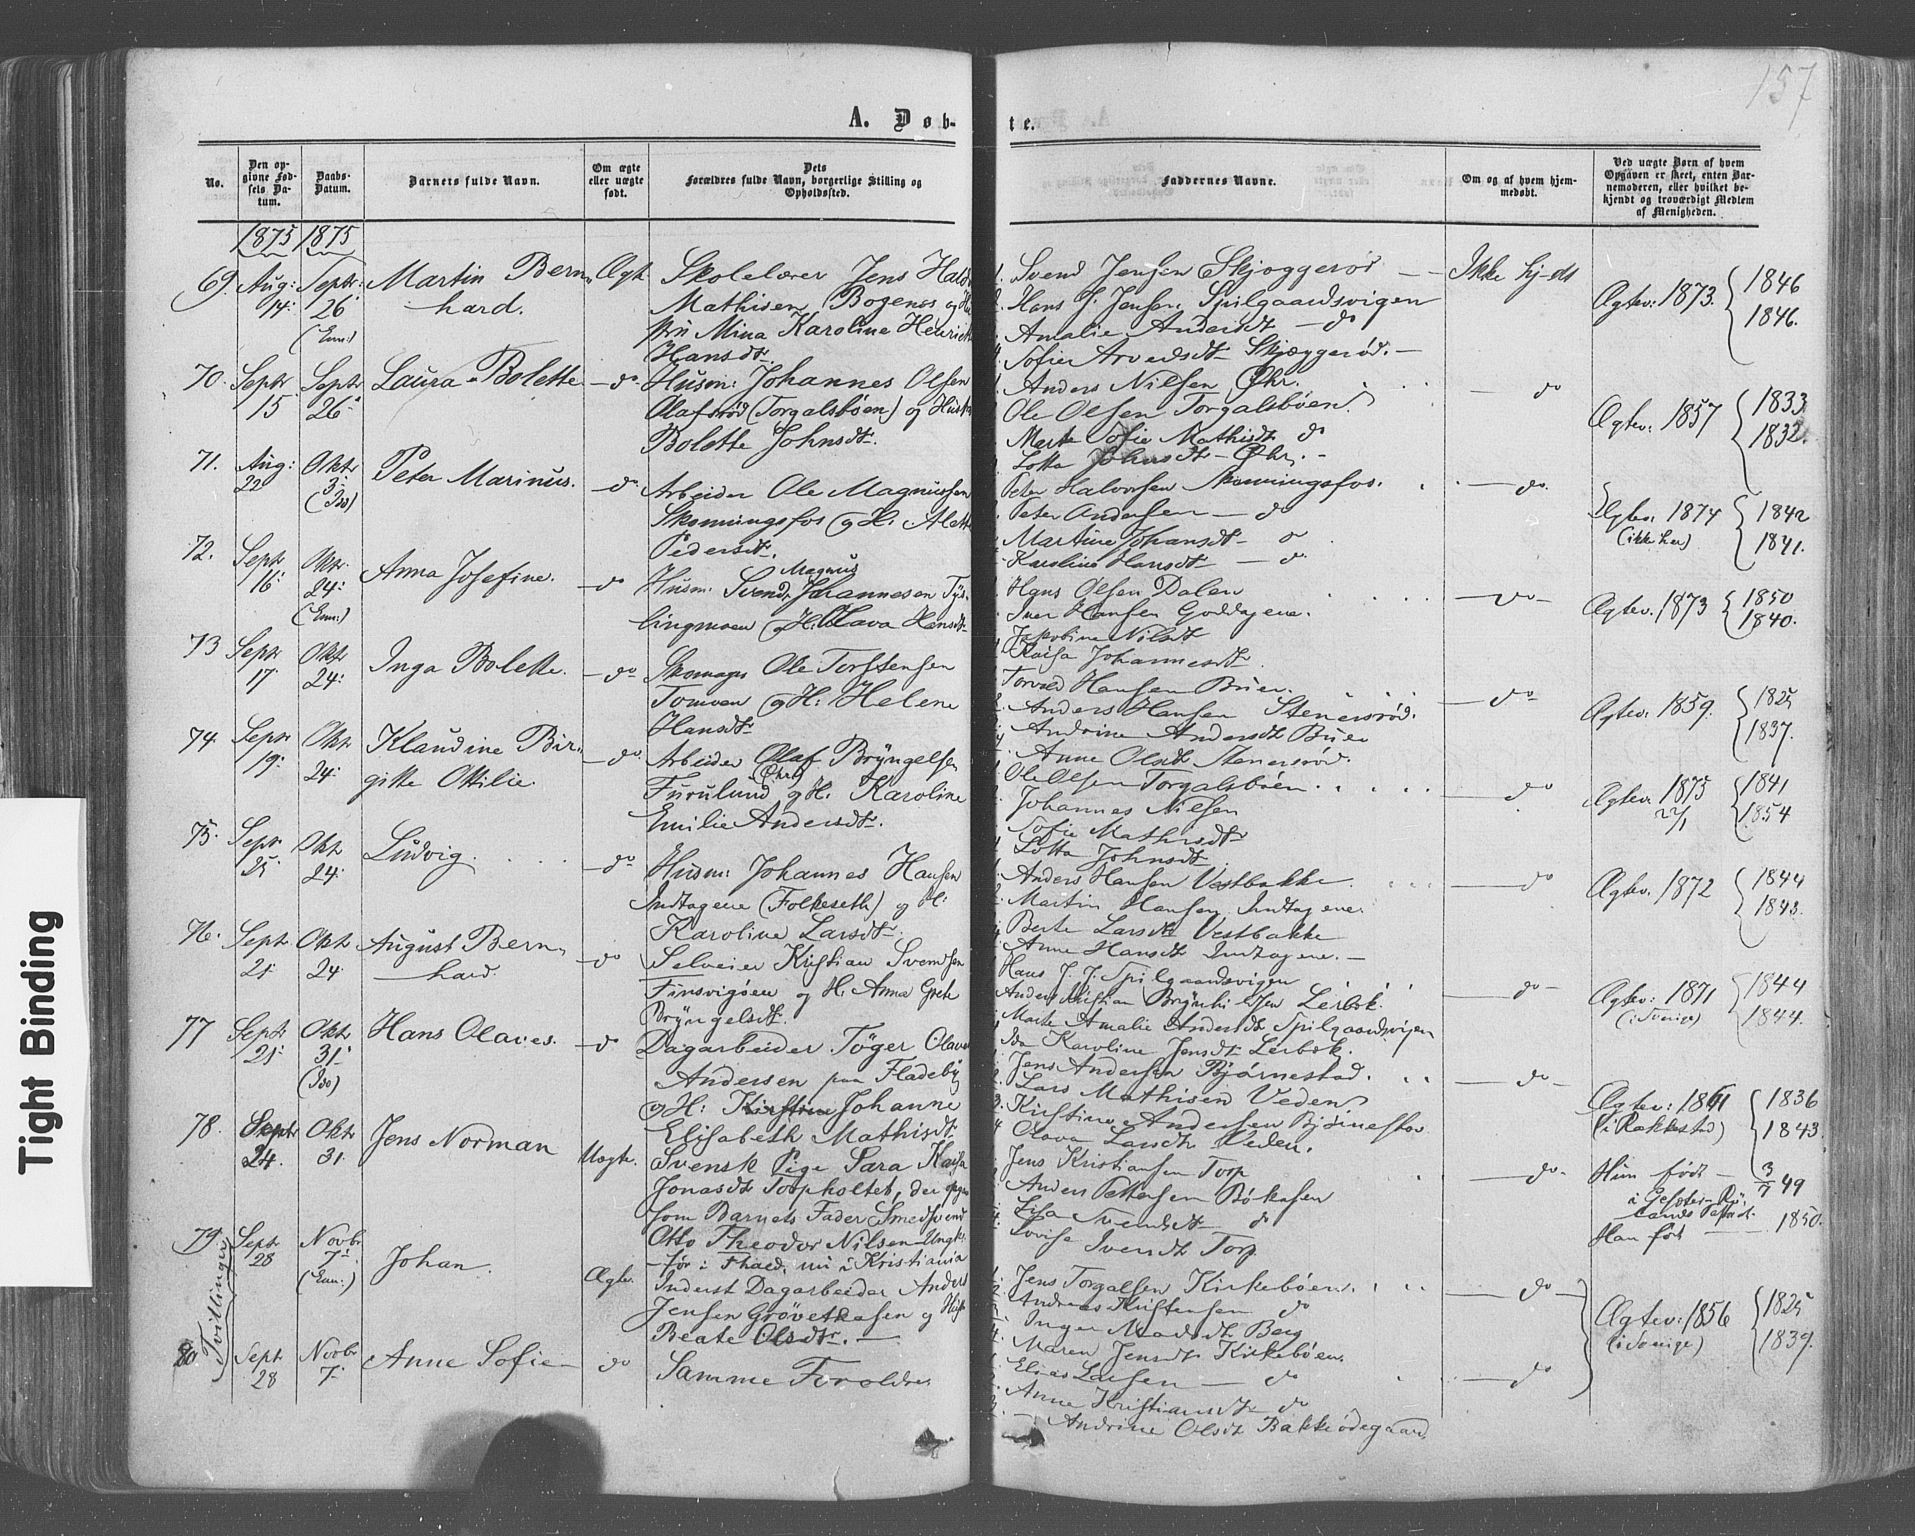 157
A. Døb-
te.
No.
Den op-
givne Fød-
sels Da-
tum.
Daabs-
Datum.
Barnets fulde Navn.
Om ægte
eller uægte
født.
Dets
Forældres fulde Navn, borgerlige Stilling og
Opholdssted.
Faddernes Navne.
Om og af hvem hjem-
medøbt.
Ved uægte Børn af hvem
Opgaven er skeet, enten Bar-
nemoderen, eller hvilket be-
kjendt og troværdigt Medlem
af Menigheden.
1875 1875
69. Aug: 14. Septr: 26 (Enn:)
Martin Bern-
hard.
Ægt.
Skolelærer Jens Hald
Mathisen Bogenes og Hu
stru Mina Karoline Henriette
Hansdtr.
Svend Jensen Skjøggerød
Hans J. Jensen Spilgaardsvigen
Amalie Andersdt do
Sofie Arvedsdt Skjæggerød.
Ikke hj-dt
Ægtev: 1873. 1846
1846.
70. Septr 15 Septr 26
Laura Bolette
do
Husm: Johannes Olsen
Olafsrød (Torgalsbøen) og Hustru
Bolette Johnsdtr.
Anders Nilsen Øhr.
Ole Olsen Torgalsbøen
Marte Sofie Mathisdt do
Lotta Johnsdt Øhr.
do
Ægtev: 1857 1833
1832.
71. Aug: 22 Oktr 3. (Ido)
Peter Marinus.
do
Arbeider Ole Magnussen
Skonningsfos og H: Alette
Pedersdt.
Peter Halvorsen Skonningsfos.
Peter Andersen do
Martine Johansdt do
Karoline Hansdt do
do.
Ægtev: 1874 1842
(ikke her) 1841.
72. Septr 16 Oktr. 24: (Enn:)
Anna Josefine.
do
Magnus
Husm: Svend Johannesen Tys-
lingmoen og H: Olava Hansdt
Hans Olsen Dalen
Iver Hansen Goddagene.
Jakobine Nilsdt
Kaisa Johannesdt
do
Ægtev: 1873 1850
1840.
73 Septr 17. Oktr 24:
Inga Bolette.
do
Skomager Ole Torstensen
Tomoen og H: Helene
Hansdtr
Torvald Hansen Buer.
Anders Hansen Stenersrød.
Andrine Andersdt Buer
Anne Olsdt Stenersrød.
do
Ægtev: 1859. 1825
1837.
74. Septr 19: Okt. 24:
Klaudine Bir-
gitte Ottilie.
do
Arbeider Olaf Bryngelsen
Furulund (Øhr) og H: Karoline
Emilie Andersdt.
Ole Olsen Torgalsbøen.
Johannes Nilsen
Sofie Mathisdt
Lotta Johnsdt
do
Ægtev. 1875 1841
22/1 1854
75. Septr 25 Okt 24:
Ludvig.
do
Husm: Johannes Hansen
Indtagene (Folkeseth) og H:
Karoline Larsdtr.
Anders Hansen Vestbakke.
Martin Hansen Indtagene.
Berte Larsdt Vestbakke
Anne Hansdt Indtagene.
do
Ægtev. 1872 1844
1843.
76. Sept. 21 Okt 24
August Bern-
hard.
do
Selveier Kristian Svendsen
Finsvigøen og H: Anna Grete
Bryngelsdt.
Hans J. J. Spilgaardsvigen
Anders Kristian Brynhildsen Lerbæk.
Marte Amalie Andersdt Spilgaardsvigen
Ida Karoline Jensdt Lerbæk.
do
Ægtev: 1871 1844
(i Sverige) 1844.
77 Septr 21: Oktr 31: (Ido)
Hans Olaves.
do
Dagarbeider Töger Olaves
Andersen paa Fladeby
og H: Johanne
Elisabeth Mathisdt
Jens Andersen Bjørnestad.
Lars Mathisen Veden
Kirstine Andersen Bjørnestad
Olava Larsdt Veden.
do
Ægtev: 1861 1836
(i Rakkestad) 1843.
78. Septr 24. Oktr 31.
Jens Norman
Uægte.
Svensk Pige Sara Kaisa
Jonasdt Torpholtet, der opgiver
som Barnets Fader Smedsvend
Otto Theodor Nilsen Ungk:
før i Fhald, nu i Kristiania
Jens Kristiansen Torp
Anders Pettersen Bökasen
Lisa Svendsdt do
Lovise Iversdt Torp
do
Hun født 3/7 49
Han født 1850.
79. Septr 28 Novbr 7: (Enn:)
Tvillinger
Johan.
Ægte.
Inderst Dagarbeider Anders
Jensen Grövetkasen og Hust
Beate Olsdtr.
Jens Torgalsen Kirkebøen
Andreas Kristensen do
Inger Madsdt Berg
Maren Jensdt Kirkebøen.
do
Ægtev: 1856 1825
(i Sverige) 1839.
80. Septr 28 Novbr 7.
Anne Sofie
do
Samme Foræld­re.
Elias Larsen do
Anne Kristiansdt do
Andrine Olsdt Bakkeødegaard
do
Tight Binding